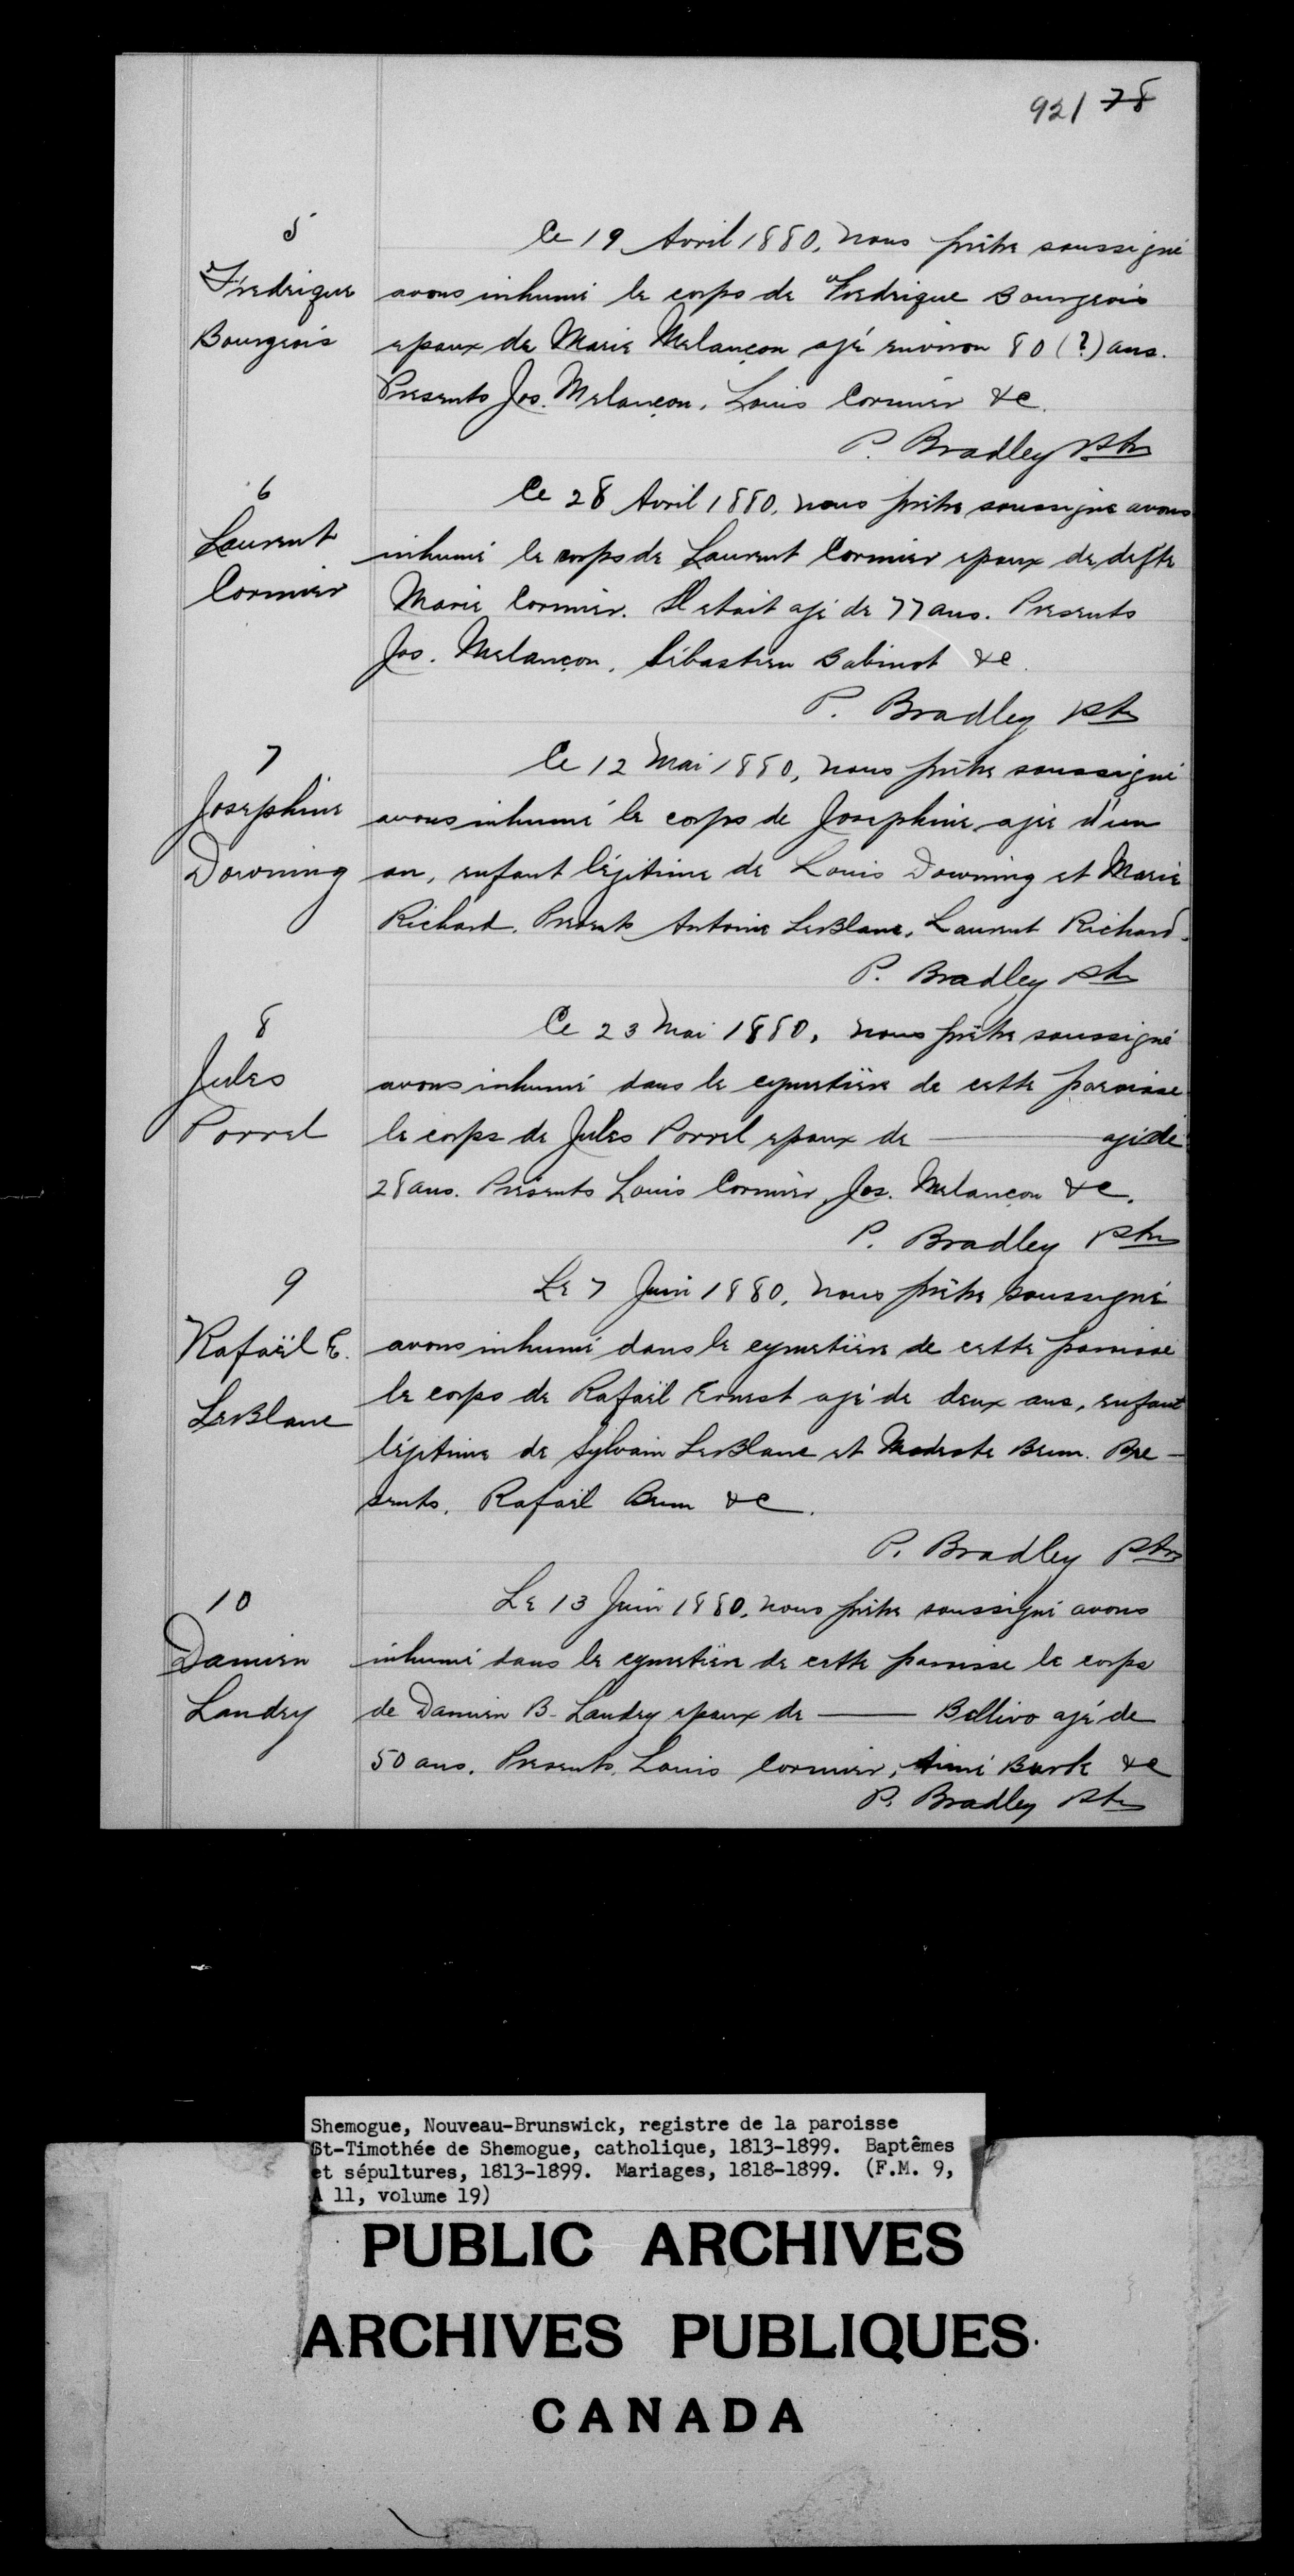 92/ 78
5
Fredrique
Bourgeois
Ce 19 Avril 1880, nous prêtre soussigné
avons inhumé le corps de Fredrique Bourgeois
epoux de Marie Melançon agé environ 80 (?) ans.
Presents Jos. Melançon, Louis Cormier &c.
P. Bradley Ptre
6
Laurent
Cormier
Ce 28 Avril 1880, nous prêtre soussigné avons
inhumé le corps de Laurent Cormier epoux de defte
Marie Cormier. Il etait agé de 77 ans. Presents
Jos. Melançon, Sébastien Babinot &c.
P. Bradley Ptre
7
Josephine
Downing
Ce 12 Mai 1880, nous prêtre soussigné
avons inhumé le corps de Josephine agée d'un
an, enfant légitime de Louis Downing et Marie
Richard. Presents Antoine LeBlanc, Laurent Richard.
P. Bradley Ptre
8
Jules
Porrel
Ce 23 Mai 1880, nous prêtre soussigné
avons inhumé dans le cymetière de cette paroisse
le corps de Jules Porrel epoux de ——— agé de
28 ans. Présents Louis Cormier, Jos. Melançon &c.
P. Bradley Ptre
9
Rafaël E.
LeBlanc
Le 7 Juin 1880, nous prêtre soussigné
avons inhumé dans le cymetière de cette paroisse
le corps de Rafaël Ernest agé de deux ans, enfant
légitime de Sylvain LeBlanc et Modeste Brun. Pre-
sents, Rafaël Brun &c.
P. Bradley Ptre
10
Damien
Landry
Le 13 Juin 1880, nous prêtre soussigné avons
inhumé dans le cymetière de cette paroisse le corps
de Damien B. Landry epoux de ——— Bellivo agé de
50 ans. Presents, Louis Cormier, Aimé Burk &c
P. Bradley Ptre
Shemogue, Nouveau-Brunswick, registre de la paroisse
St-Timothée de Shemogue, catholique, 1813-1899. Baptêmes
et sépultures, 1813-1899. Mariages, 1818-1899. (F.M. 9,
A 11, volume 19)
PUBLIC ARCHIVES
ARCHIVES PUBLIQUES
CANADA